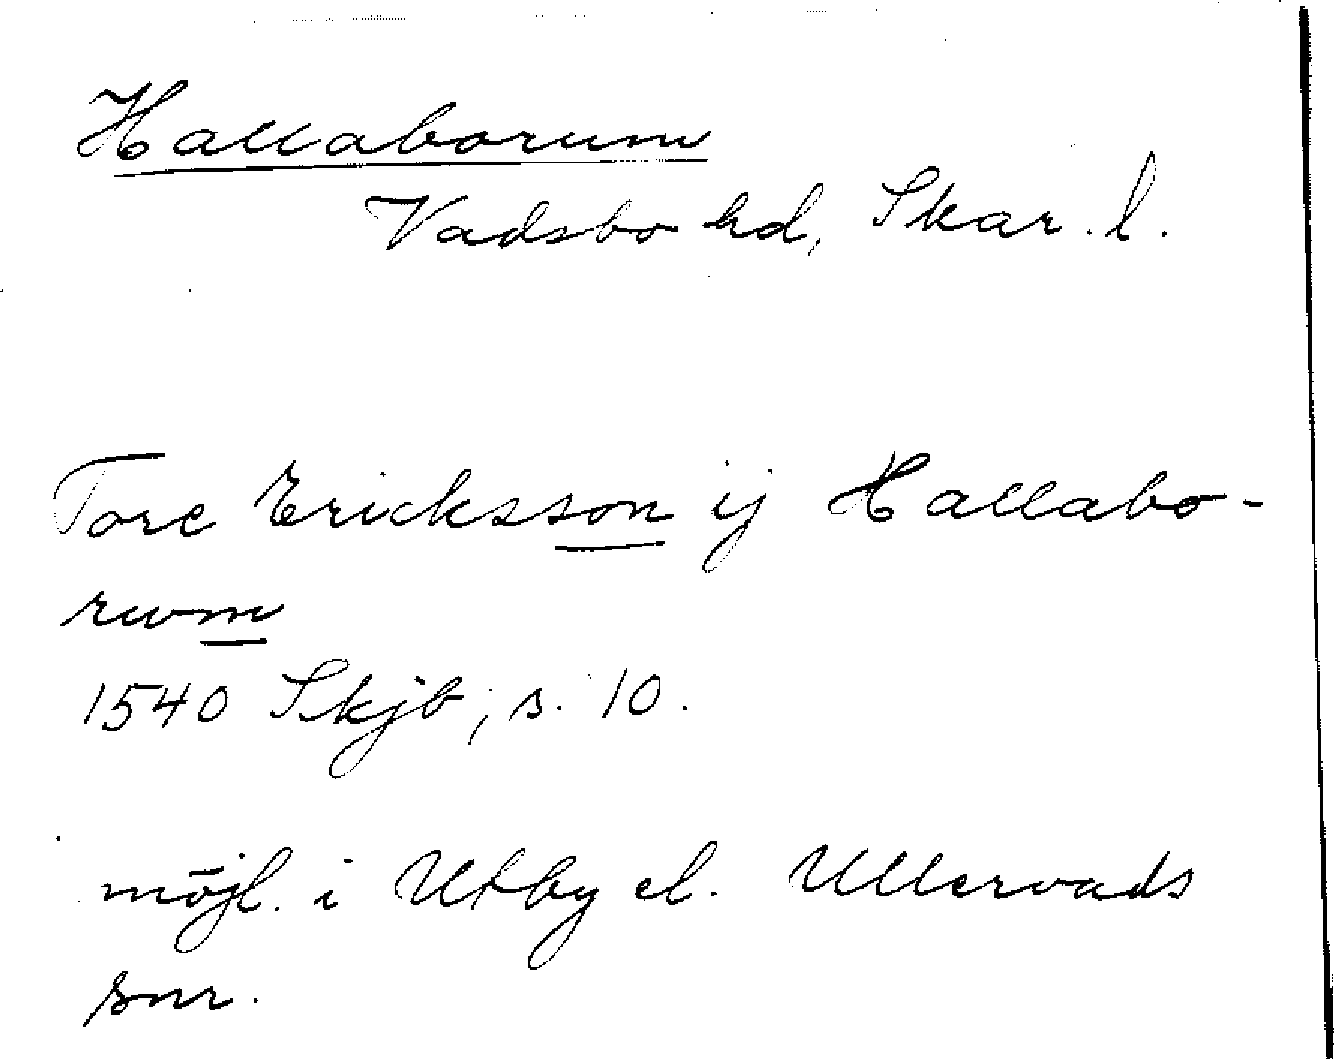 Hallaborum
Vadsbo hd, Skar. l.
Tore Ericksson ij Hallabo-
rwm
1540 Skjb, s. 10.
möjl. i Utby el. Ullervads
snr.